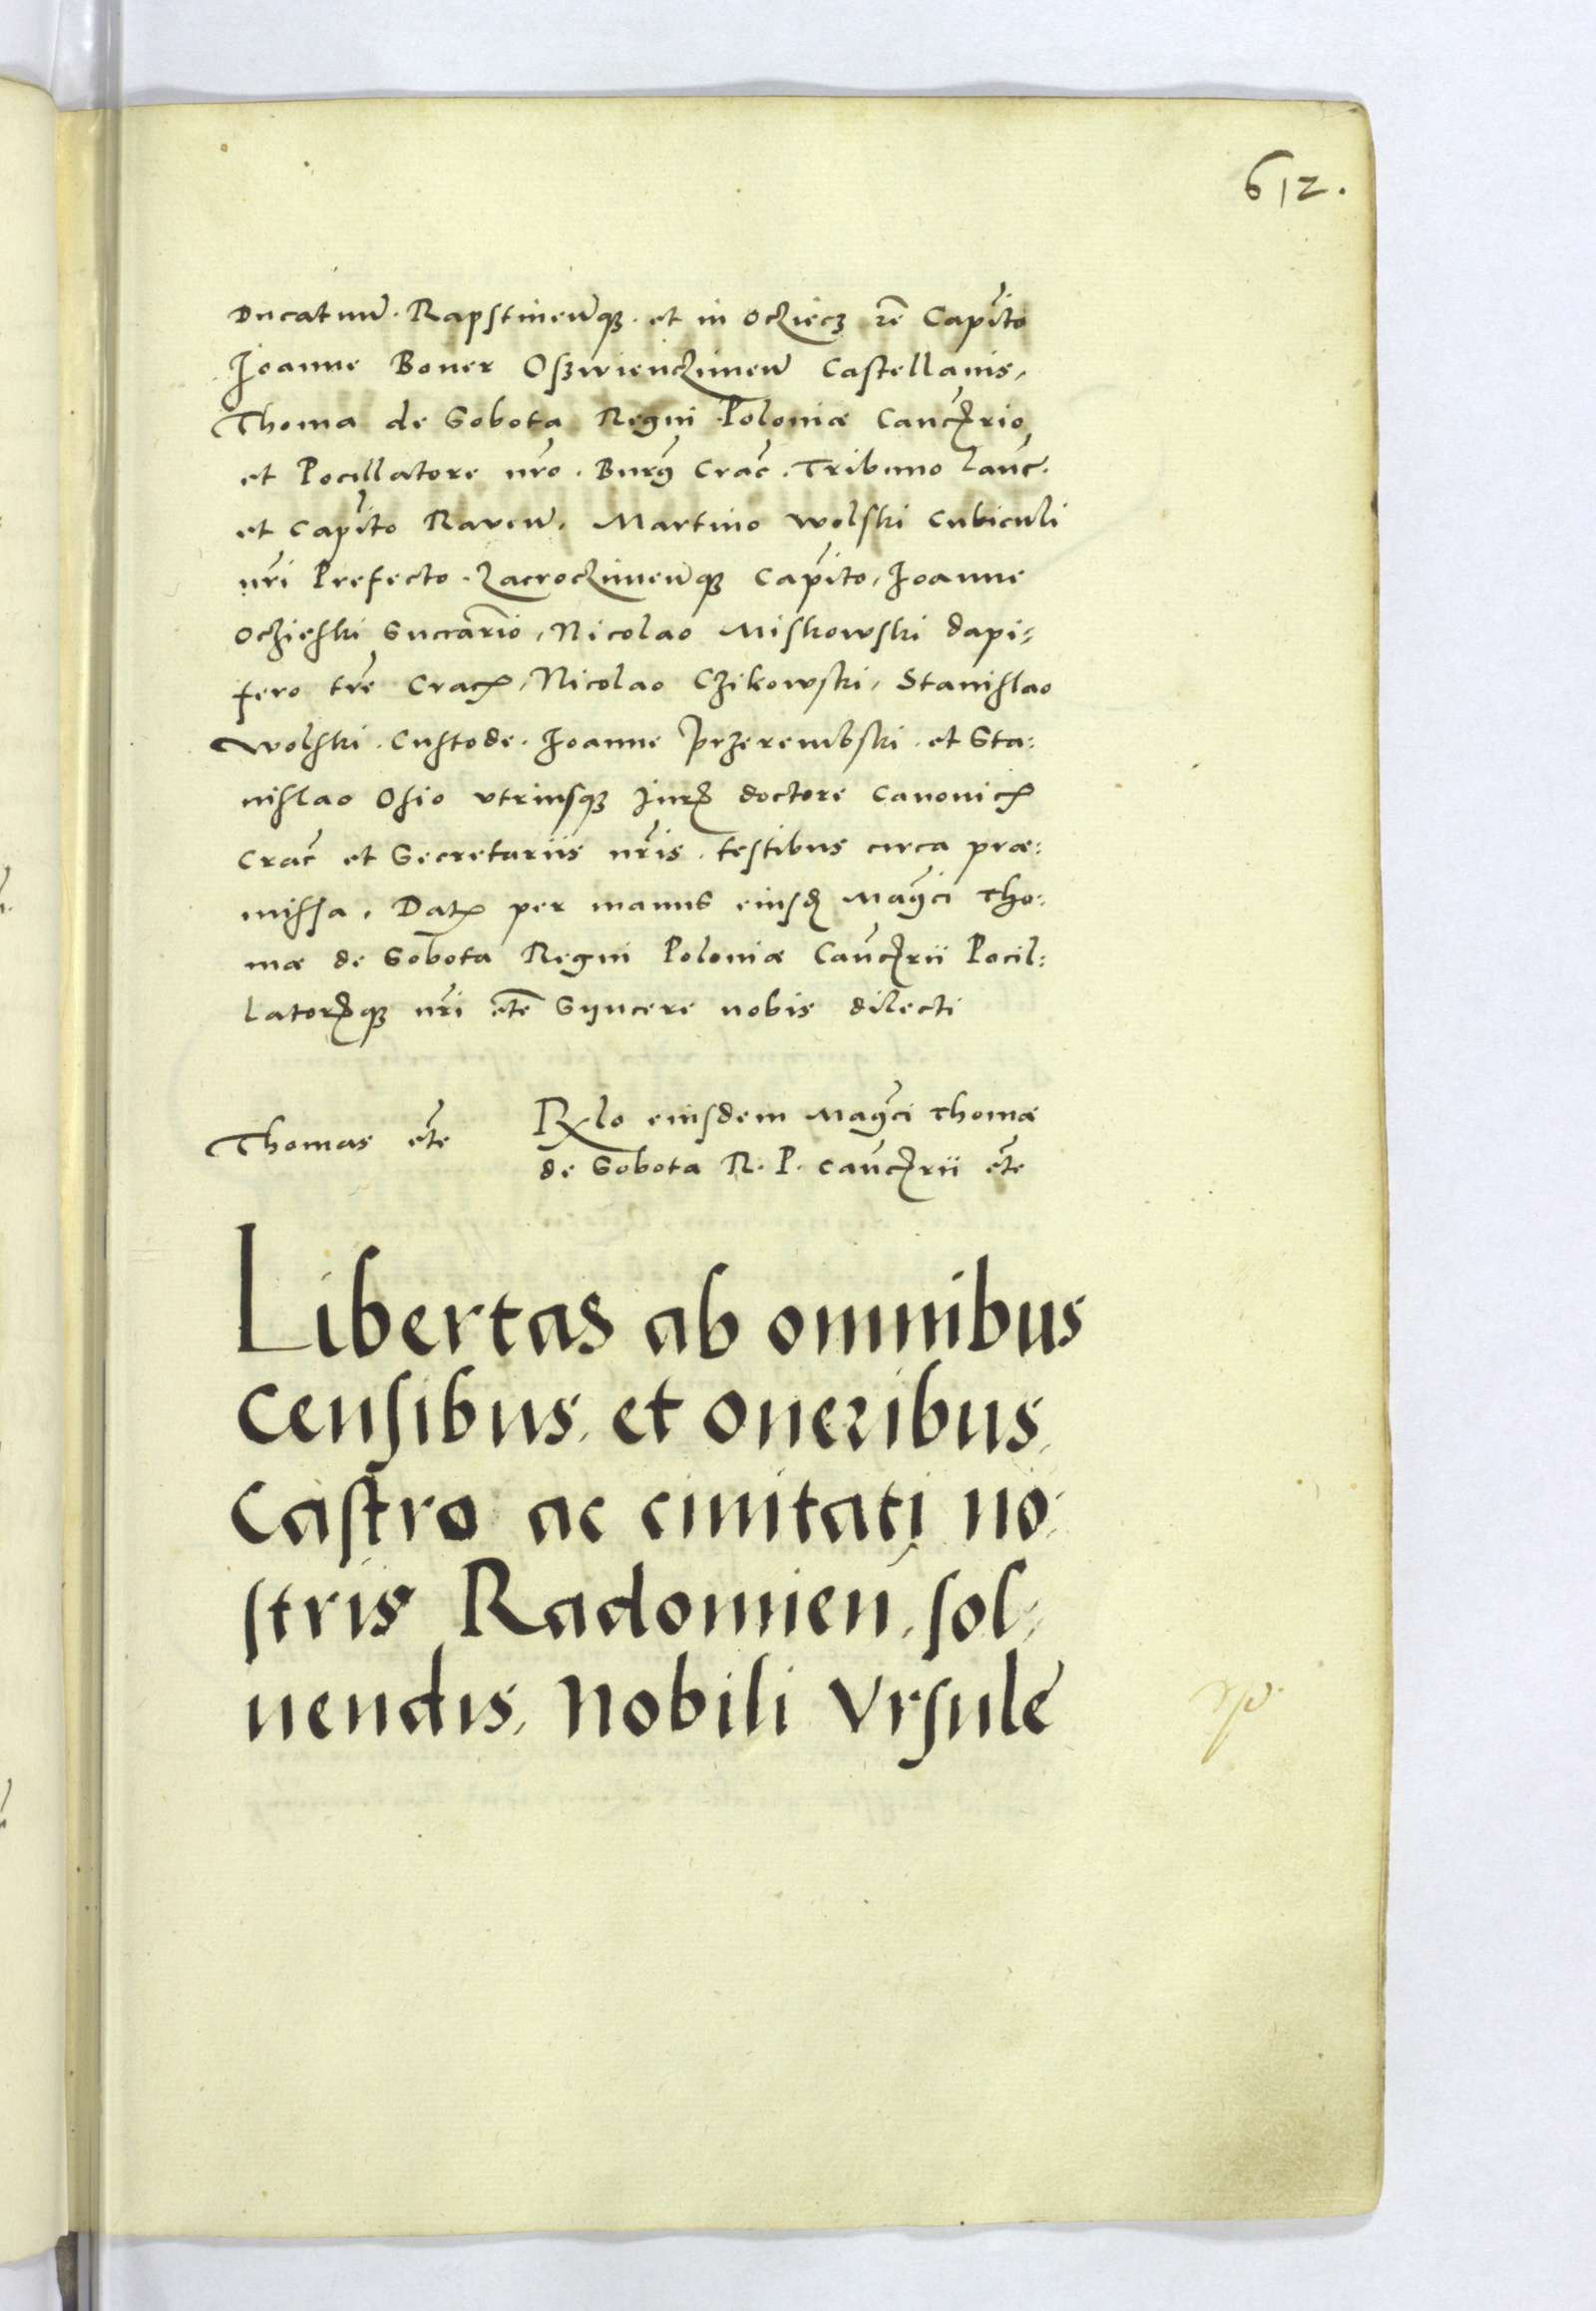 612.
Ducatuum. Rapstinenque. et in Ocziecz etc Capito
Joanne Boner Oszwienczimen Castellanis,
Thoma de Sobota Regni Poloniæ Cancrio
et Pocillatore nro. Burg Crac. Tribuno lanc.
et Capito Raven. Martino Wolski Cubiculi
nri Prefecto. Zacroczimenque Capito, Joanne
Oczieski Succario, Nicolao Miskowski dapi:
fero tre Crac, Nicolao Czikowski, Stanislao
Wolski. Custode. Joanne Przerembski. et Sta:
nislao Osio utriusque Juris doctore Canonicis
Crac et Secretariis nris. testibus circa præ:
missa. Dat per manus eiusd Magci Tho:
mæ de Sobota Regni Poloniæ Cancrii Pocil:
latorisque nri etc Syncere nobis dilecti
Thomas etc
Rlo eiusdem Magci Thomæ
de Sobota R. P. Cancrii etc
Libertas ab omnibus
censibus, et oneribus,
Castro ac ciuitati no:
stris Radomien, sol:
uendis, nobili Vrsule